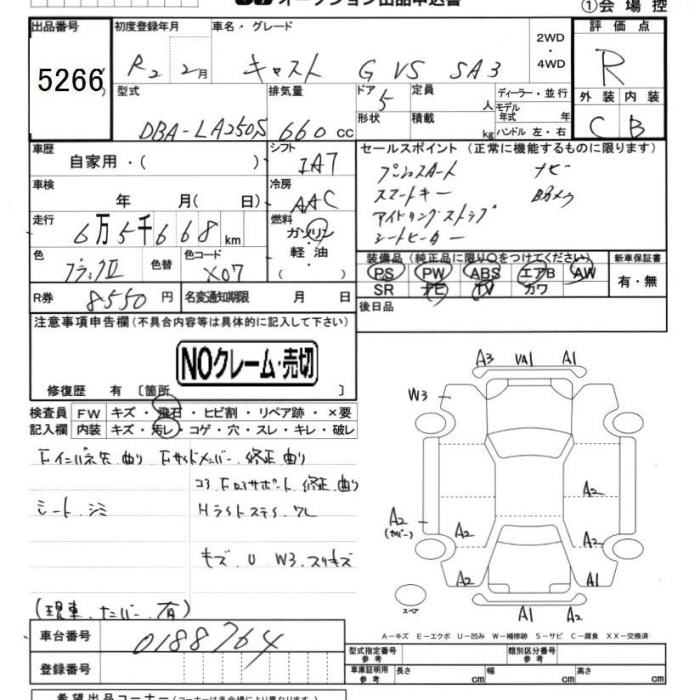 オークション出品申込書
①会場控
出品番号 初度登録年月 車名・グレード 2WD ・ 4WD 評価点
5266 R2 2月 キャスト G VS SA3 R
型式 排気量 ドア 定員 ディーラー・並行 外装 内装
DBA-LA250S 660 cc 5 人 モデル年式 年 C B
形状 積載 kg ハンドル 左・右
車歴 自家用・( ) シフト IA7 セールスポイント (正常に機能するものに限ります)
プッシュスタート ナビ
車検 年 月( 日) 冷房 AAC スマートキー Bカメラ
走行 6万5千668km 燃料 ガソリン・軽油 ( ) アイドリングストップ
シートヒーター
色 ブラックⅡ 色替 色コード X07 装備品 (純正品に限り○をつけてください) 新車保証書
PS PW ABS エアB AW 有・無
SR ナビ TV カワ
R券 8550円 名変通知期限 月 日 後日品
注意事項申告欄(不具合内容等は具体的に記入して下さい)
NOクレーム・売切
修復歴 有 〔箇所 〕
検査員 FW キズ・飛石・ヒビ割・リペア跡・×要
記入欄 内装 キズ・汚レ・コゲ・穴・スレ・キレ・破レ
Fインパネ先曲り Fサイドメンバー修正、曲り
コアFロアサポート、修正、曲り
シート シミ HライトステイワレL
キズ U W3 スリキズ
(現車、ナンバー、有)
A3 VA1 A1
W3
A2
A2
(カバー)
A2
A2
A2
A1
スペア
A1 A2
A-キズ E-エクボ U-凹み W-補修跡 S-サビ C-腐食 XX-交換済
車台番号 0188764
登録番号
型式指定番号 参考 類別区分番号 参考
車庫証明用 参考 長さ cm 幅 cm 高さ cm
希望出品コーナー